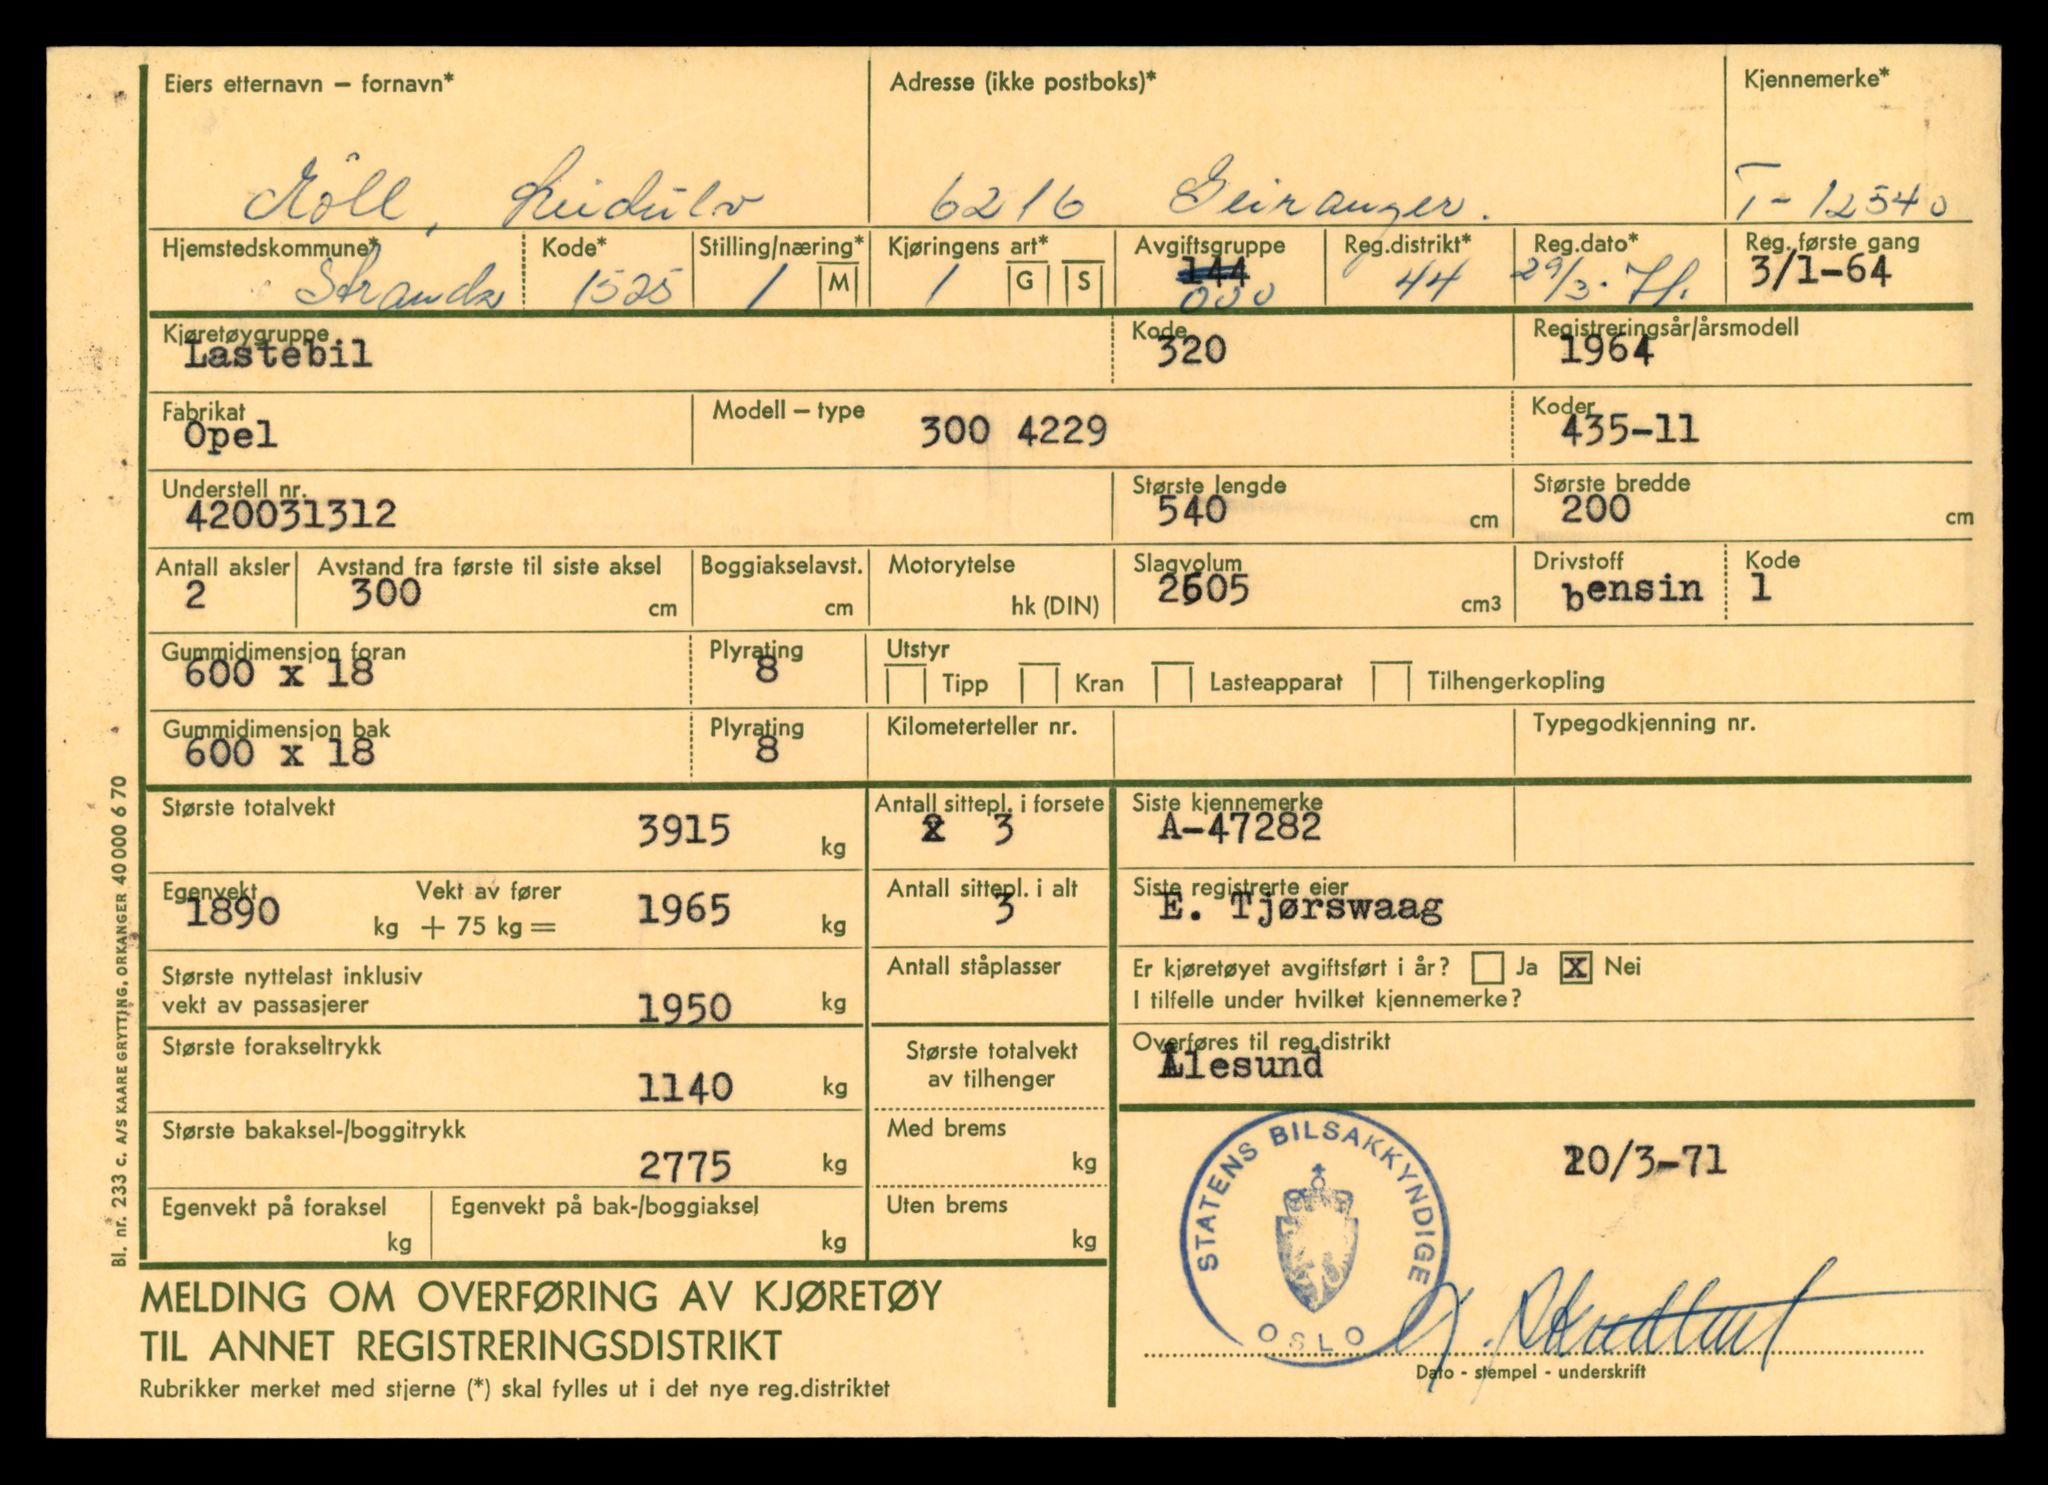 Eiers etternavn – fornavn*
Adresse (ikke postboks)*
Kjennemerke*
Möll, Leidulv
6216 Geiranger.
T-12540
Hjemstedskommune* Kode* Stilling/næring* Kjøringens art* Avgiftsgruppe Reg.distrikt* Reg.dato* Reg. første gang
Stranda 1525 1 M 1 G S 144 000 44 29/3-71. 3/1-64
Kjøretøygruppe Kode Registreringsår/årsmodell
Lastebil 320 1964
Fabrikat Modell – type Koder
Opel 300 4229 435-11
Understell nr. Største lengde Største bredde
420031312 540 cm 200 cm
Antall aksler Avstand fra første til siste aksel Boggiakselavst. Motorytelse Slagvolum Drivstoff Kode
2 300 cm cm hk (DIN) 2605 cm3 bensin 1
Gummidimensjon foran Plyrating Utstyr
600 x 18 8 Tipp Kran Lasteapparat Tilhengerkopling
Gummidimensjon bak Plyrating Kilometerteller nr. Typegodkjenning nr.
600 x 18 8
Største totalvekt 3915 kg
Antall sittepl. i forsete
3
Siste kjennemerke
A-47282
Egenvekt Vekt av fører
1890 kg + 75 kg = 1965 kg
Antall sittepl. i alt
3
Siste registrerte eier
E. Tjørswaag
Største nyttelast inklusiv
vekt av passasjerer 1950 kg
Antall ståplasser
Er kjøretøyet avgiftsført i år? Ja x Nei
I tilfelle under hvilket kjennemerke?
Største forakseltrykk
1140 kg
Største totalvekt
av tilhenger
Overføres til reg.distrikt
Ålesund
Største bakaksel-/boggitrykk
2775 kg
Med brems
kg
Egenvekt på foraksel kg
Egenvekt på bak-/boggiaksel kg
Uten brems
kg
STATENS BILSAKKYNDIGE
OSLO
20/3-71
Dato - stempel - underskrift
MELDING OM OVERFØRING AV KJØRETØY
TIL ANNET REGISTRERINGSDISTRIKT
Rubrikker merket med stjerne (*) skal fylles ut i det nye reg.distriktet
Bl. nr. 233 c. A/S KAARE GRYTTING, ORKANGER 40 000 6 70